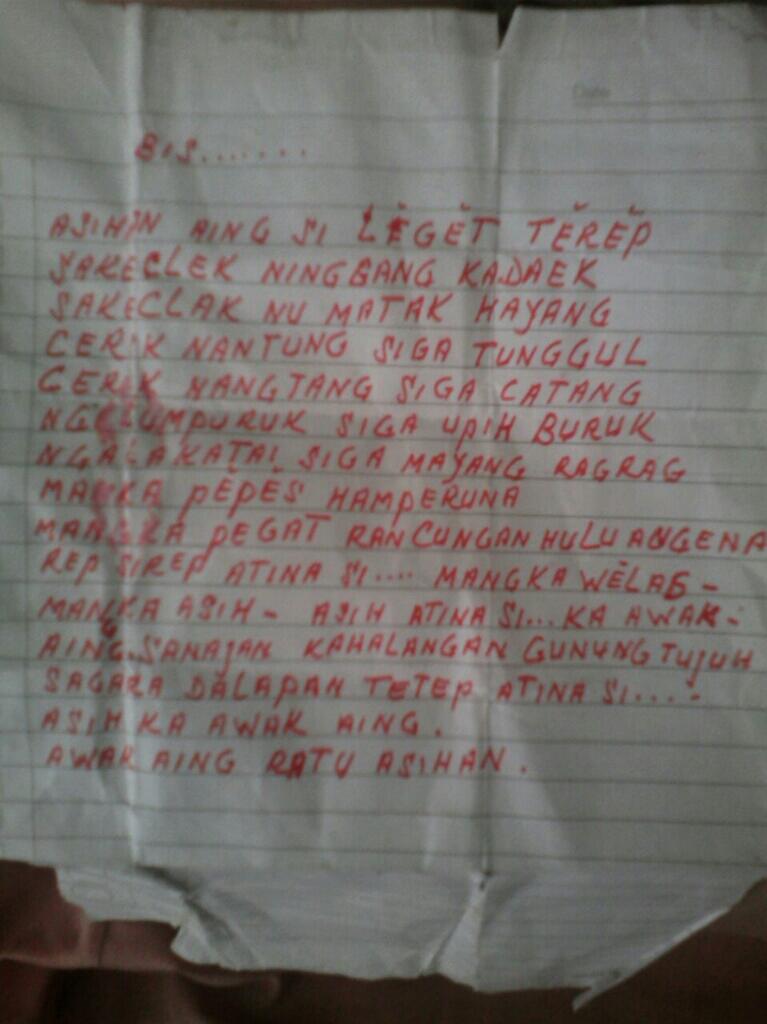 Date
BIS.......
ASIHAN AING SI LĔGĔT TĔRĔP
SAKECLEK NINGGANG KADAEK
SAKECLAK NU MATAK HAYANG
CERIK NANTUNG SIGA TUNGGUL
CERIK NANGTANG SIGA CATANG
NGGLUMPURUK SIGA UPIH BURUK
NGALAKATAI SIGA MAYANG RAGRAG
MANKA PĔPĔS HAMPERUNA
MANGKA PEGAT RANCUNGAN HULU ANGENA
REP SIREP ATINA SI.... MANGKA WĔLAS -
MANGKA ASIH - ASIH ATINA SI... KA AWAK -
AING. SANAJAN KAHALANGAN GUNUNG TUJUH
SAGARA DALAPAN TETEP ATINA SI.... -
ASIH KA AWAK AING.
AWAK AING RATU ASIHAN.